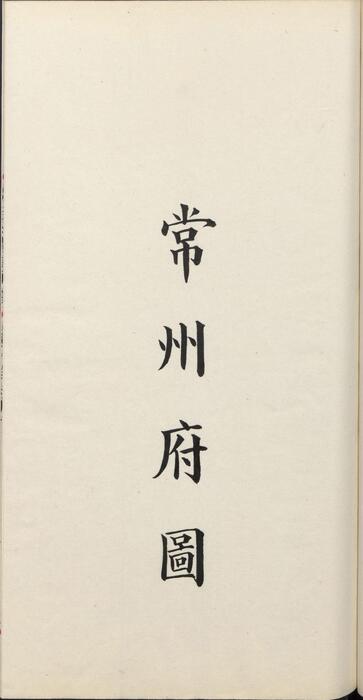 常州府圖